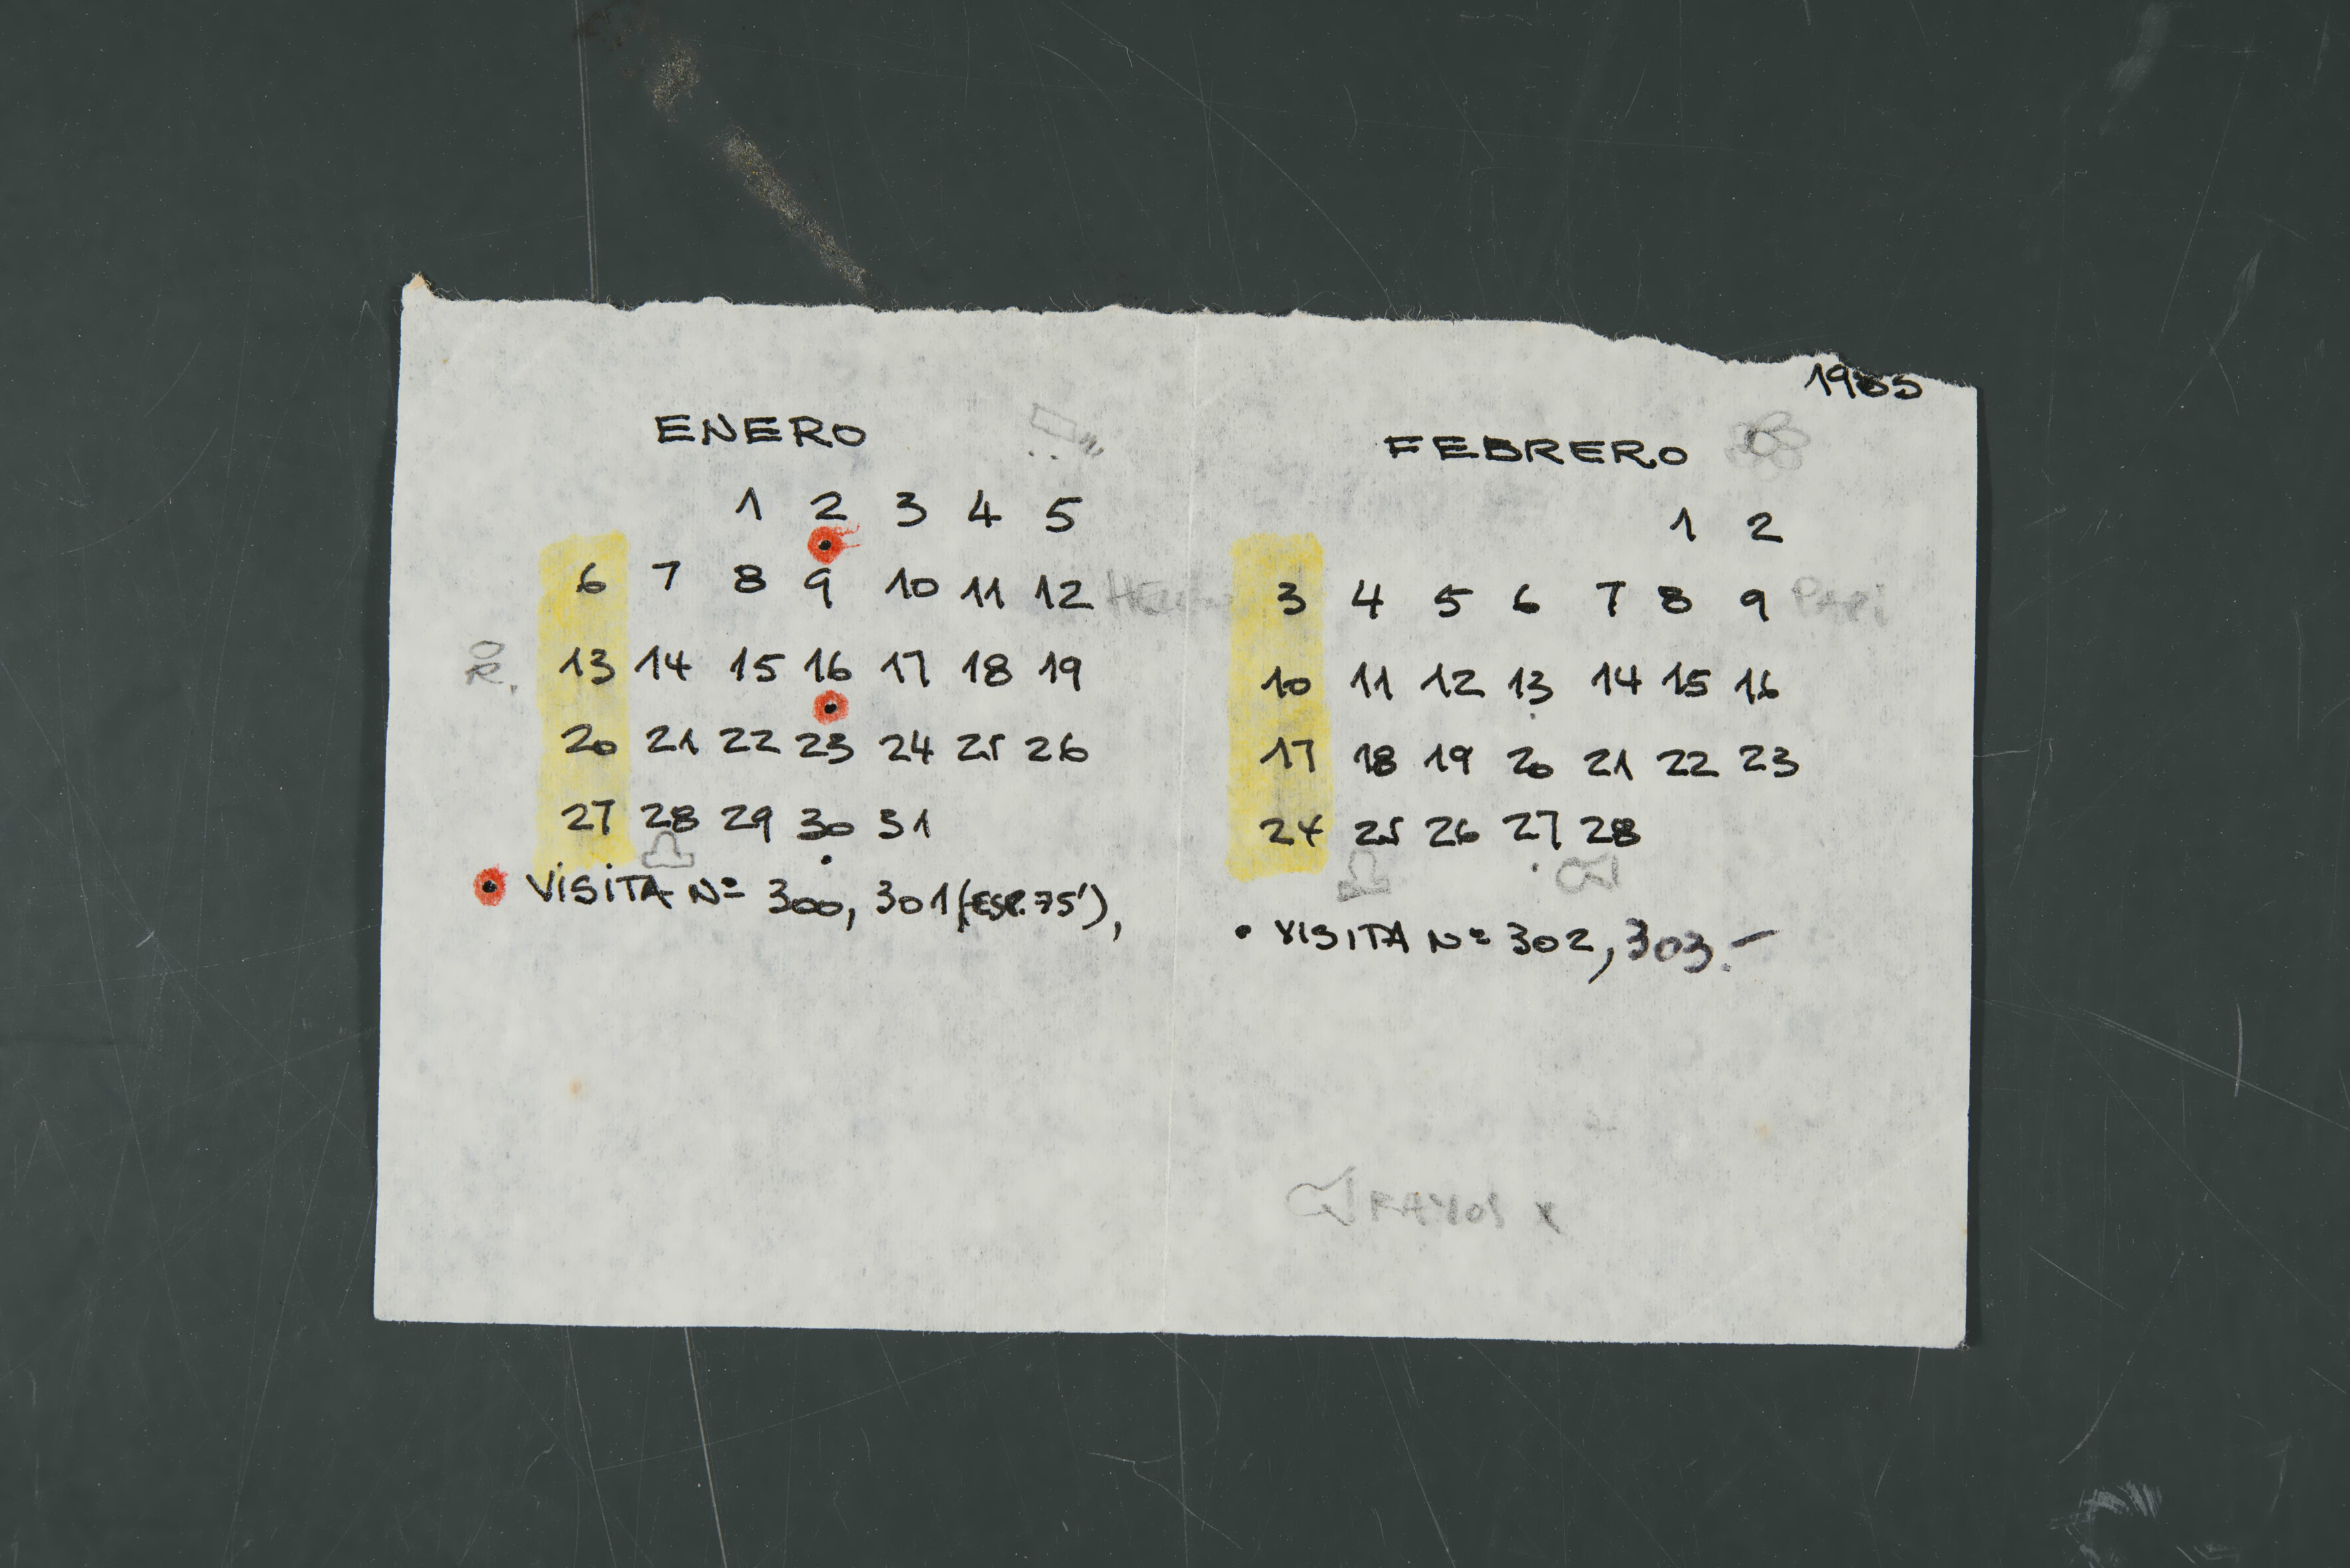 1985
ENERO
1 2 3 4 5
6 7 8 9 10 11 12
R. 13 14 15 16 17 18 19
20 21 22 23 24 25 26
27 28 29 30 31
VISITA Nº 300, 301 (ESP. 75'),
FEBRERO
1 2
3 4 5 6 7 8 9 PAPi
10 11 12 13 14 15 16
17 18 19 20 21 22 23
24 25 26 27 28
• VISITA Nº 302, 303.-
RAYOS X